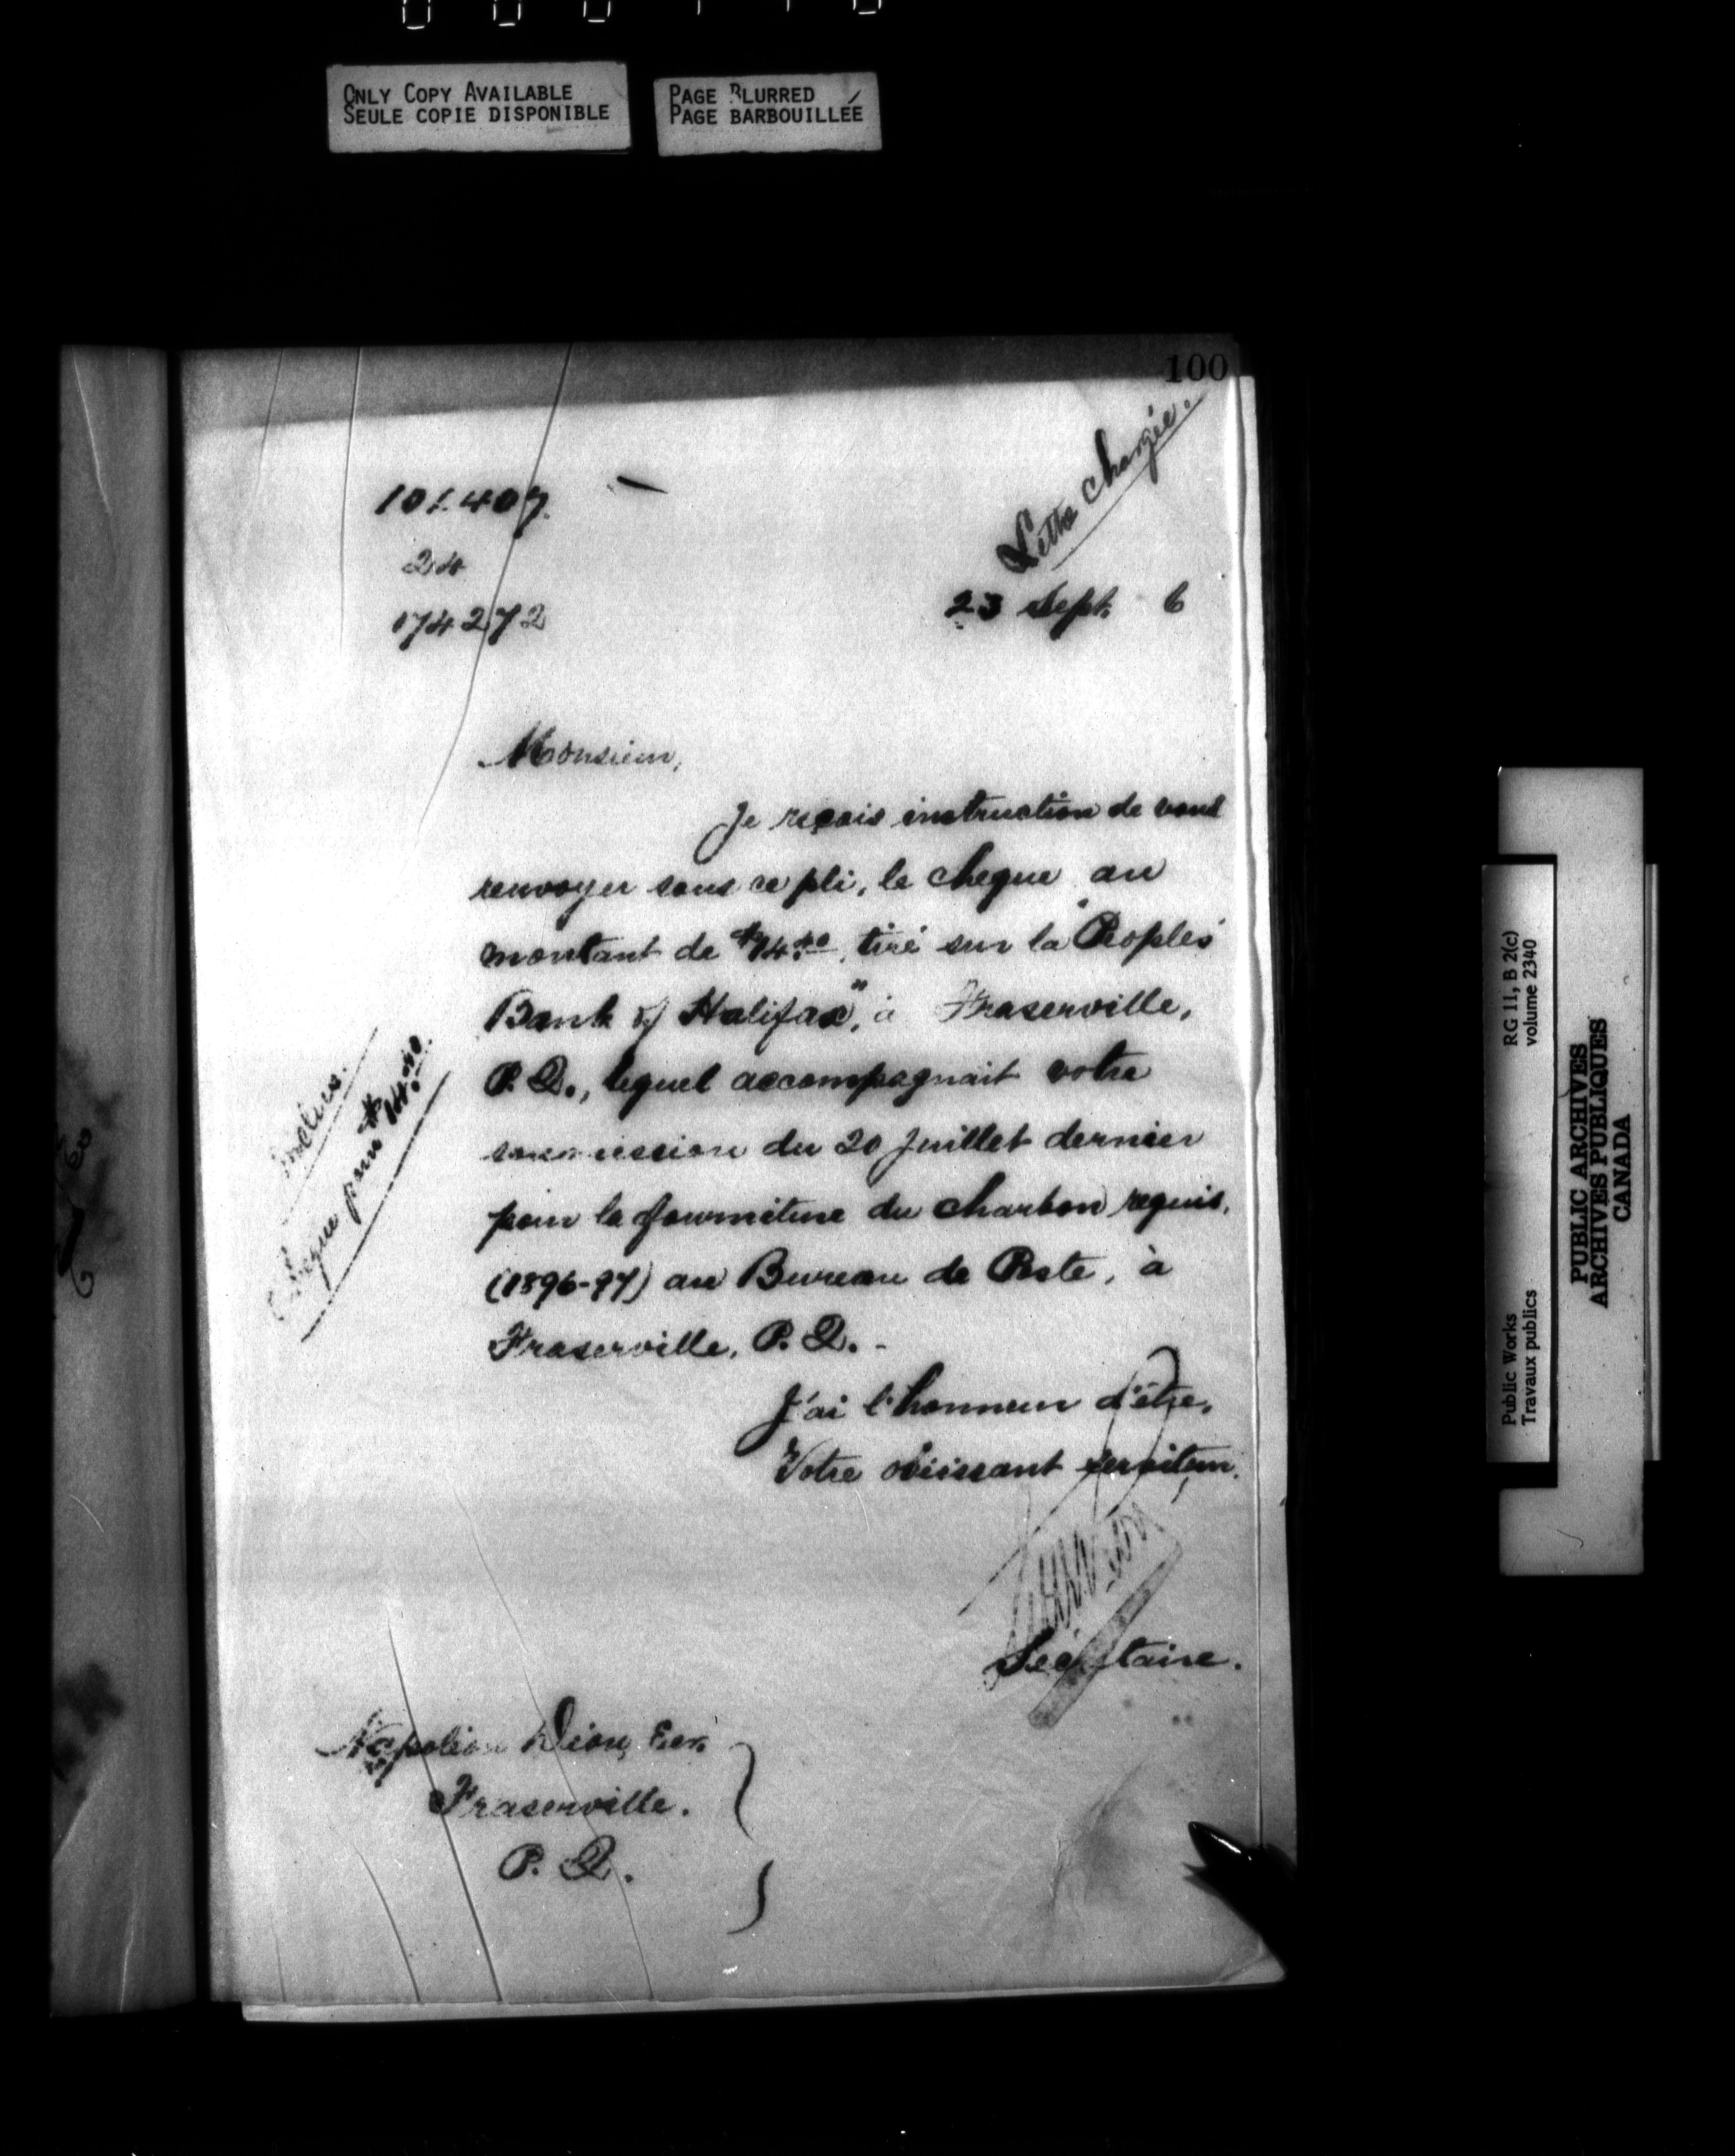 ONLY COPY AVAILABLE
SEULE COPIE DISPONIBLE
PAGE BLURRED
PAGE BARBOUILLÉE
100
Lettre chargée.
101.407.
24
174272
23 Sept. 6
Monsieur,
Je reçois instruction de vous
renvoyer sous ce pli, le cheque au
montant de $14.40, tiré sur la "Peoples'
Bank of Halifax", à Fraserville,
P. Q., lequel accompagnait votre
soumission du 20 Juillet dernier
pour la fourniture du charbon requis,
(1896-97) au Bureau de Poste, à
Fraserville, P. Q. -
Inclus.
Cheque pour $14.40.
J'ai l'honneur d'être,
Votre obéissant serviteur,
Secrétaire.
Napoléon Dion, Ecr.
Fraserville.
P. Q.
Public Works
Travaux publics
RG 11, B 2(c)
volume 2340
PUBLIC ARCHIVES
ARCHIVES PUBLIQUES
CANADA